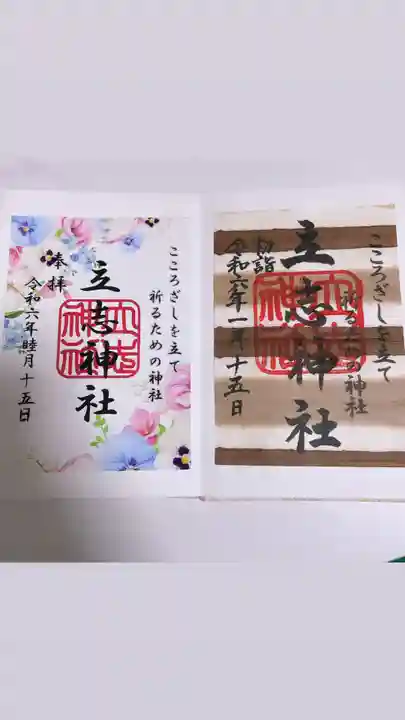 こころざしを立て
祈るための神社
初詣
立志神社
令和六年一月十五日
こころざしを立て
祈るための神社
奉拝
立志神社
令和六年睦月十五日